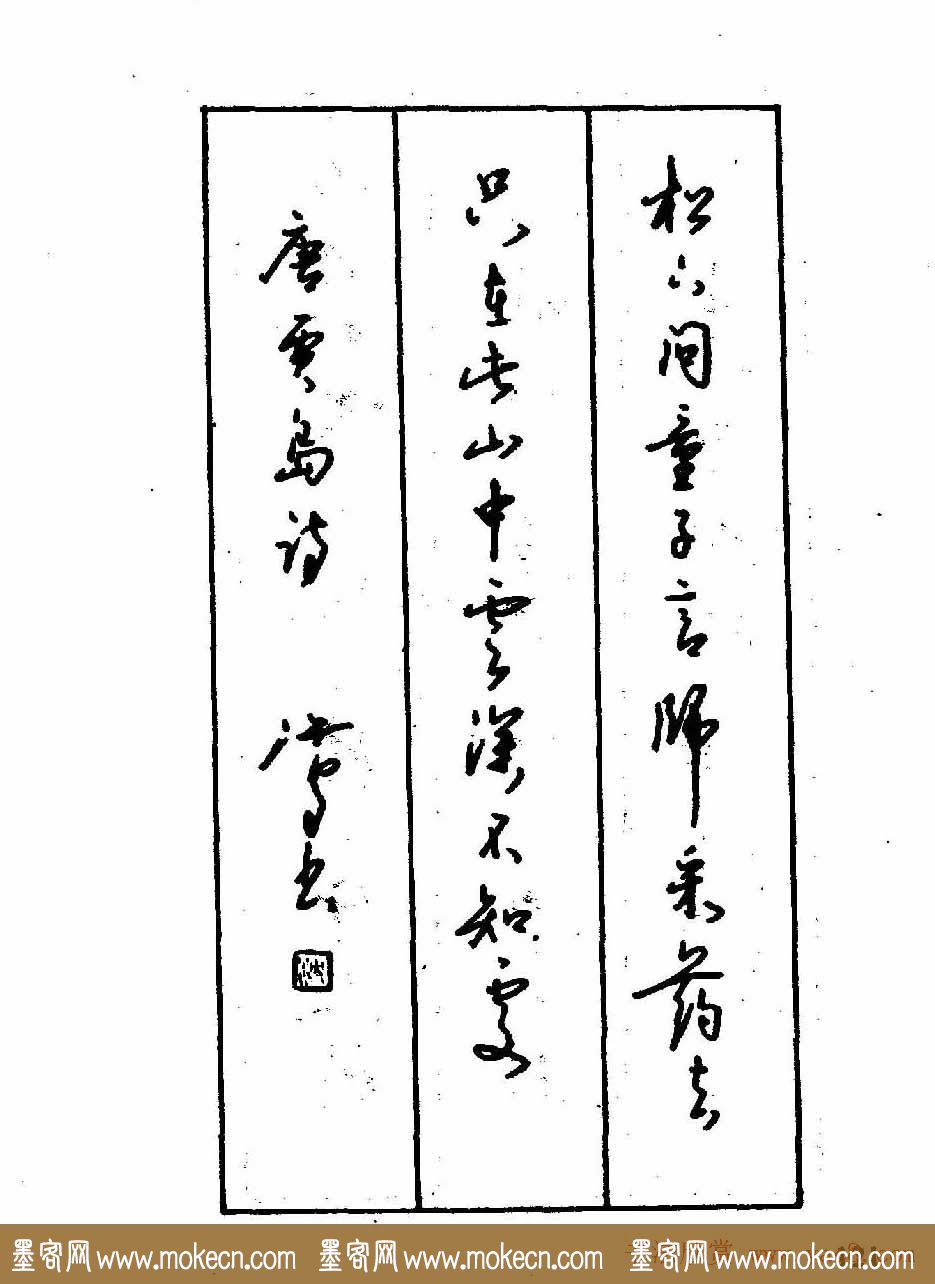 松下问童子言師采药去
只在此山中雲深不知處
唐贾島诗
書
墨客网 www.mokecn.com 墨客网 www.mokecn.com 墨客网 www.mokecn.com